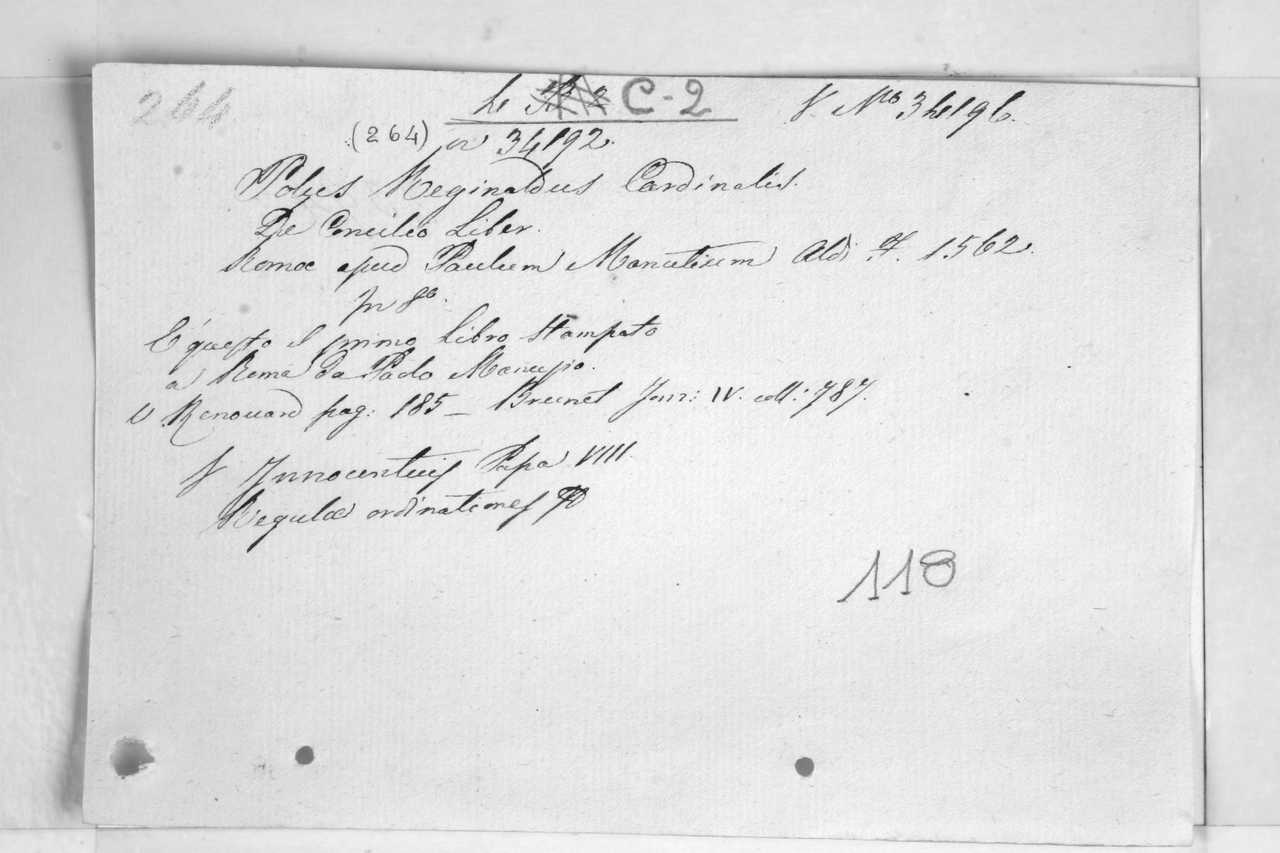 264 C-2 V. No 34196.
(264) n 34192.
Polus Reginaldus Cardinalis.
De Concilio Liber.
Romæ apud Paulum Manutium Aldi F. 1562.
In 8o.
E' questo il primo libro stampato
a Roma da Paolo Manuzio.
V Renouard pag: 185 _ Brunet Tom: IV. coll: 787.
V Innocentius Papa VIII.
Regulæ ordinationes
118